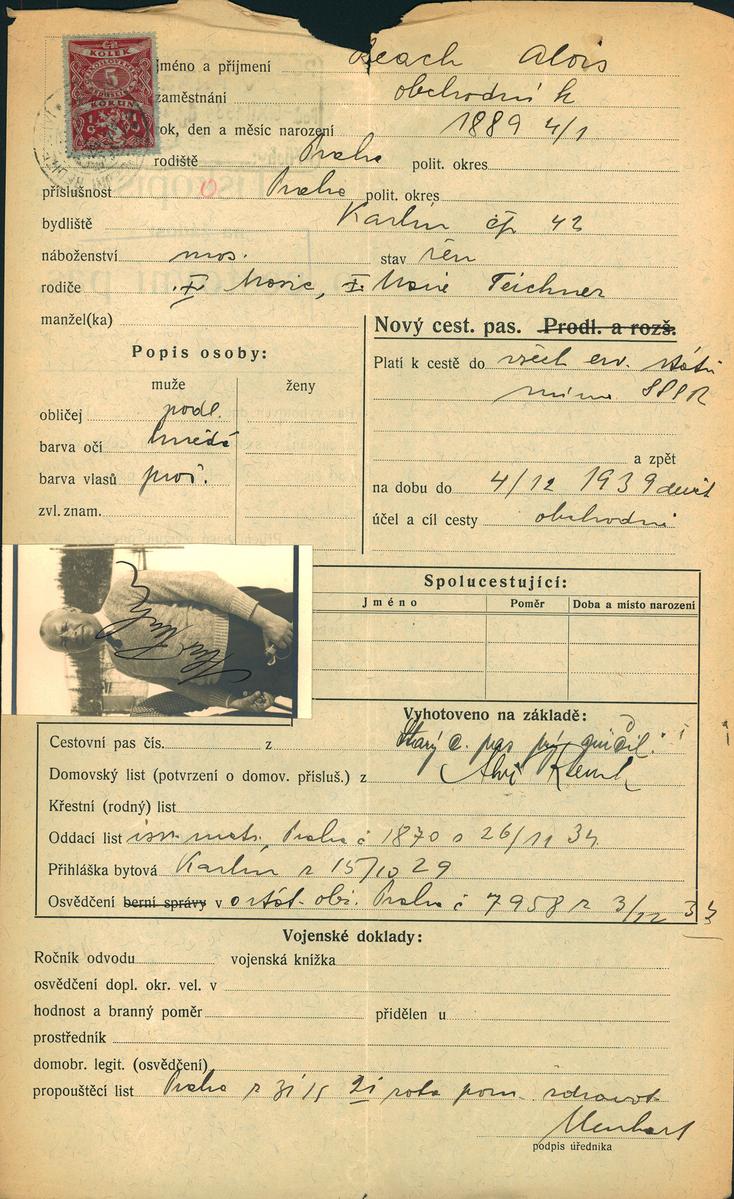 KOLEK
5
KORUN
jméno a příjmení Beach Alois
zaměstnání obchodní k
rok, den a měsíc narození 1889 4/1
rodiště Praha polit. okres
příslušnost Praha polit. okres
bydliště Karlín čp 42
náboženství mos. stav žen
rodiče Moric, Marie Teichner
manžel(ka)
Nový cest. pas. Prodl. a rozš.
Popis osoby:
muže ženy
obličej podl.
barva očí hnědé
barva vlasů proš.
zvl. znam.
Platí k cestě do všech ev. států
mimo SSSR
a zpět
na dobu do 4/12 1939
účel a cíl cesty obchodní
Spolucestující:
Jméno Poměr Doba a místo narození
Vyhotoveno na základě:
Cestovní pas čís. z Starý c. pas
Domovský list (potvrzení o domov. přísluš.) z
Křestní (rodný) list
Oddací list isr. mat. Praha č 1870 26/11 34
Přihláška bytová Karlín z 15/10 29
Osvědčení berní správy v o stát. obč. Praha č 7958 z 3/12 34
Vojenské doklady:
Ročník odvodu vojenská knížka
osvědčení dopl. okr. vel. v
hodnost a branný poměr přidělen u
prostředník
domobr. legit. (osvědčení)
propouštěcí list Praha z rota pom. zdravot
podpis úředníka